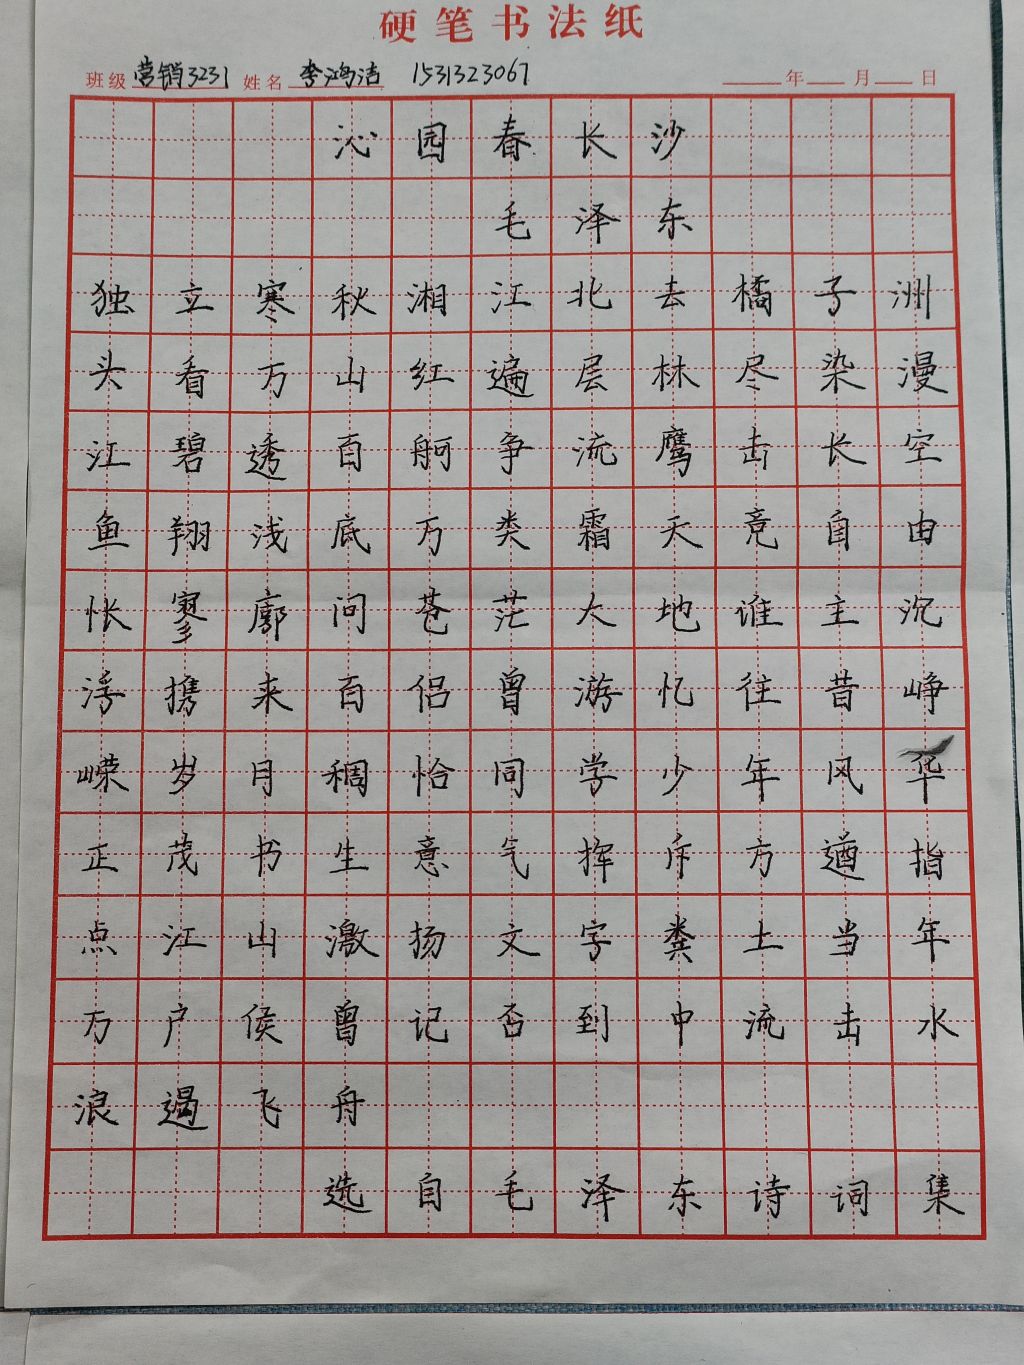 硬笔书法纸
班级 营销3231 姓名 李鸿洁 1531323067 年 月 日
沁园春长沙
毛泽东
独立寒秋湘江北去橘子洲
头看万山红遍层林尽染漫
江碧透百舸争流鹰击长空
鱼翔浅底万类霜天竞自由
怅寥廓问苍茫大地谁主沉
浮携来百侣曾游忆往昔峥
嵘岁月稠恰同学少年风华
正茂书生意气挥斥方遒指
点江山激扬文字粪土当年
万户侯曾记否到中流击水
浪遏飞舟
选自毛泽东诗词集